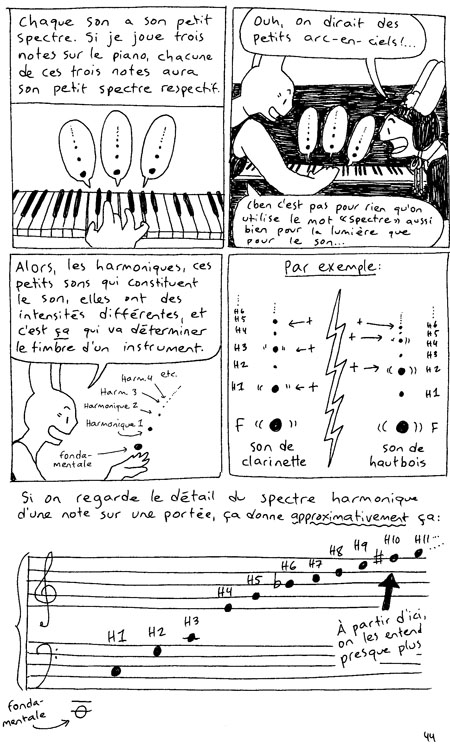 Chaque son a son petit
spectre. Si je joue trois
notes sur le piano, chacune
de ces trois notes aura
son petit spectre respectif.
Ouh, on dirait des
petits arc-en-ciels!...
(ben c'est pas pour rien qu'on
utilise le mot "spectre" aussi
bien pour la lumière que
pour le son...
Alors, les harmoniques, ces
petits sons qui constituent
le son, elles ont des
intensités différentes, et
c'est ça qui va déterminer
le timbre d'un instrument.
etc.
Harm 4
Harm 3
Harmonique 2
Harmonique 1
fonda-
mentale
Par exemple:
H6
H5
H4
H3
H2
H1
F
+
+
+
son de
clarinette
+
+
+
H6
H5
H4
H3
H2
H1
F
son de
hautbois
Si on regarde le détail du spectre harmonique
d'une note sur une portée, ça donne approximativement ça:
H1 H2 H3 H4 H5 H6 H7 H8 H9 H10 H11...
À partir d'ici,
on les entend
presque plus
fonda-
mentale
44